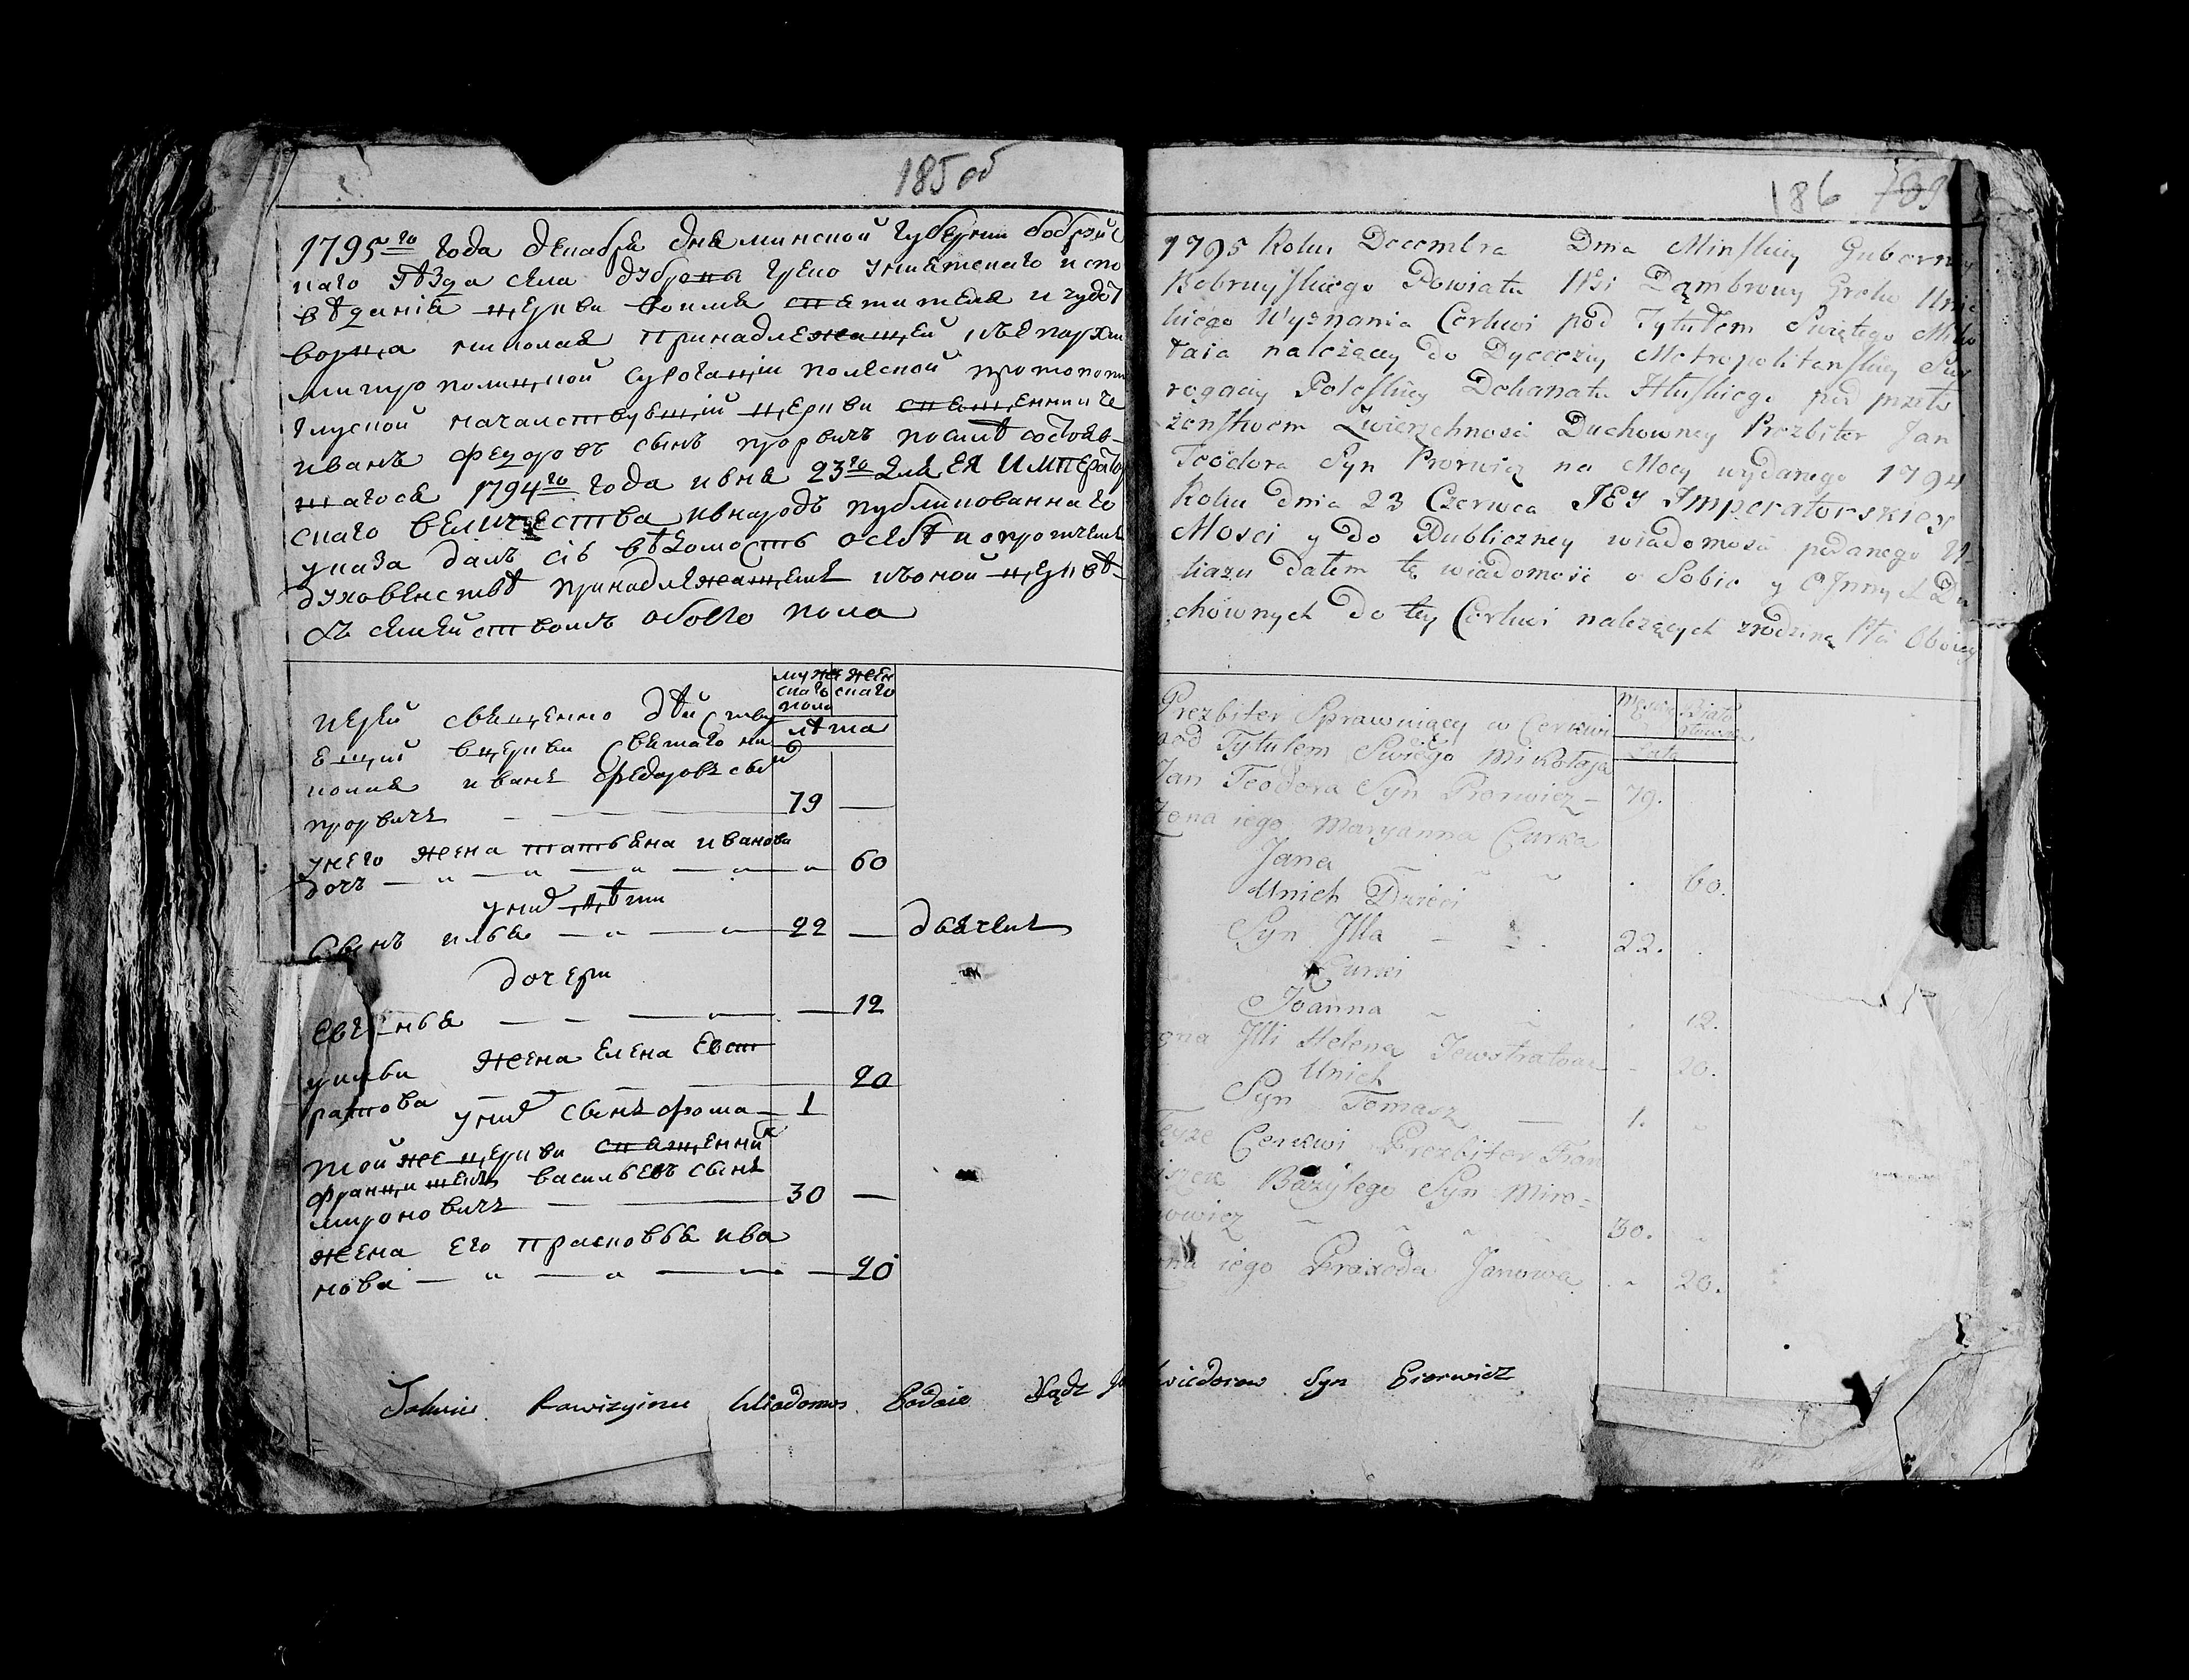 185 об
1795го года декабря дня минской губернии бобруйс
каго уѣзда села дубровы греко униатскаго испо
вѣданія церкви воимя святителя и чудот
ворца николая принадлежащей къ епархии
митрополицкой суроганціи полеской протопопии
глуской началствующій церкви священникъ
иванъ федоровъ сынъ прорвичъ послѣ состояв-
шагося 1794го года июня 23го дня ЕЯ ИМПЕРАТОР
скаго величества внародъ публикованнаго
указа далъ сію вѣдомость осебѣ и о протчемъ
духовенствѣ принадлежащемъ къоной церквѣ
съ семействомъ обоего пола
муже жен
скаго скаго
пола
лѣта
иерей священно дѣйству
ещий вцеркви святаго ни
колая иванъ федоровъ сынъ
прорвичъ — 79 —
унего жена татьяна иванова
дочь — 60
унихъ дѣти
Сынъ илья — 22 — дьячекъ
дочери
Евгенья — 12
уильи жена Елена Евст
ратова — 20
унихъ сынъ фома — 1
той же церкви священникъ
францишекъ васильевъ сынъ
мироновичъ — 30 —
жена его прасковья ива
нова — 20
186 189
1795 Roku Decembra Dnia Minskiey Gubernij
Bobruyskiego Powiatu Wsi Dąmbrowy Greko Unic
kiego Wyznania Cerkwi pod Tytułem Swiętego Miko
łaia należącey do Dyecezyi Metropolitanskiey Sur
rogacij Poleskiey Dekanatu Hłuskiego pod przeło
żenstwem Zwierzchnosci Duchowney Prezbiter Jan
Teodora Syn Prorwicz na Mocy wydanego 1794
Roku dnia 23 Czerwca JEY Imperatorskiey
Mosci y do Publiczney wiadomosci podanego U-
kazu dałem tę wiadomość o Sobie y o Innych Du
chownych do tey Cerkwi należących z rodziną Płci Oboiey
Męska Biało
Głowska
Lata
Prezbiter Sprawuiący w Cerkwi
pod Tytułem Swięgo Mikołaja
Jan Teodora Syn Prorwicz – 79.
Żona iego Maryanna Curka
Jana 60.
Unich Dzieci
Syn Jlla – 22.
Curki
Joanna 12.
ona Jlli Helena Jewstratowa – 20.
Unich
Syn Tomasz — 1.
Teyże Cerkwi Prezbiter Fran
iszek Bazylego Syn Miro-
nowicz 30.
ona iego Praxeda Janowa 20.
Takowe Rawizyinu Wiadomos Podaie Xądz Ja wiedorow Syn Prorwicz